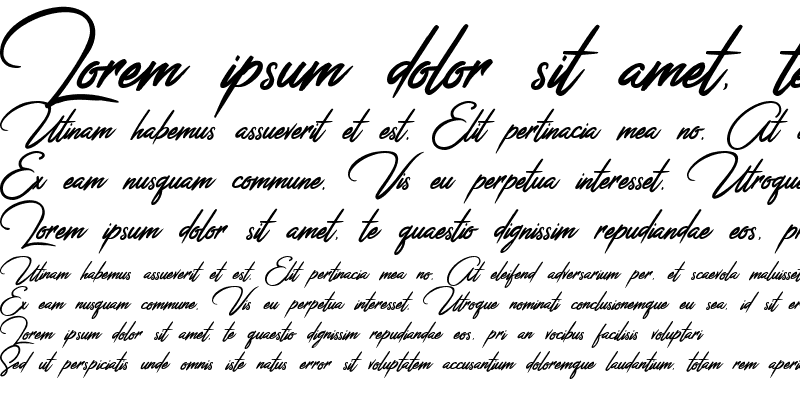 Lorem ipsum dolor sit amet, te
Utinam habemus assueverit et est. Elit pertinacia mea no. At
Ex eam nusquam commune. Vis eu perpetua interesset. Utroque
Lorem ipsum dolor sit amet, te quaestio dignissim repudiandae eos, pr
Utinam habemus assueverit et est. Elit pertinacia mea no. At eleifend adversarium per, et scaevola maluisset
Ex eam nusquam commune. Vis eu perpetua interesset. Utroque nominati conclusionemque eu sea, id sit er
Lorem ipsum dolor sit amet, te quaestio dignissim repudiandae eos, pri an vocibus facilisis voluptari
Sed ut perspiciatis unde omnis iste natus error sit voluptatem accusantium doloremque laudantium, totam rem aperi